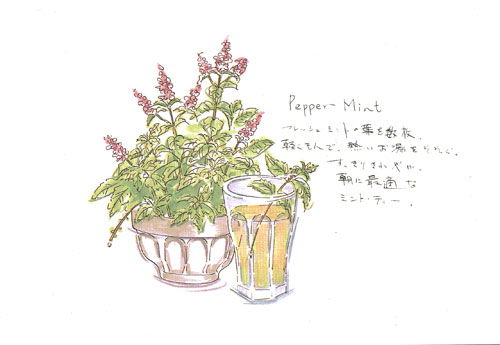 Pepper Mint
フレッシュミントの葉を数枚、
軽くもんで、熱いお湯をそそぐ。
すっきりさわやか。
朝に最適な
ミント・ティー。